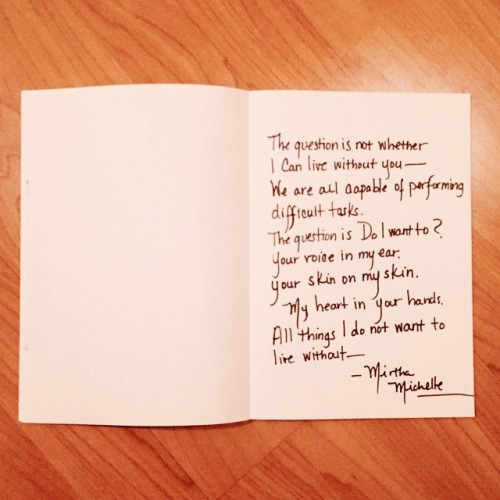 The question is not whether
I Can live without you—
We are all capable of performing
difficult tasks.
The question is Do I want to?
Your voice in my ear.
your skin on my skin.
My heart in your hands.
All things I do not want to
live without—
- Mirtha
Michelle